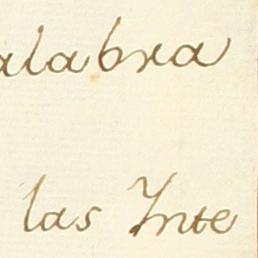 alabra
las Inte